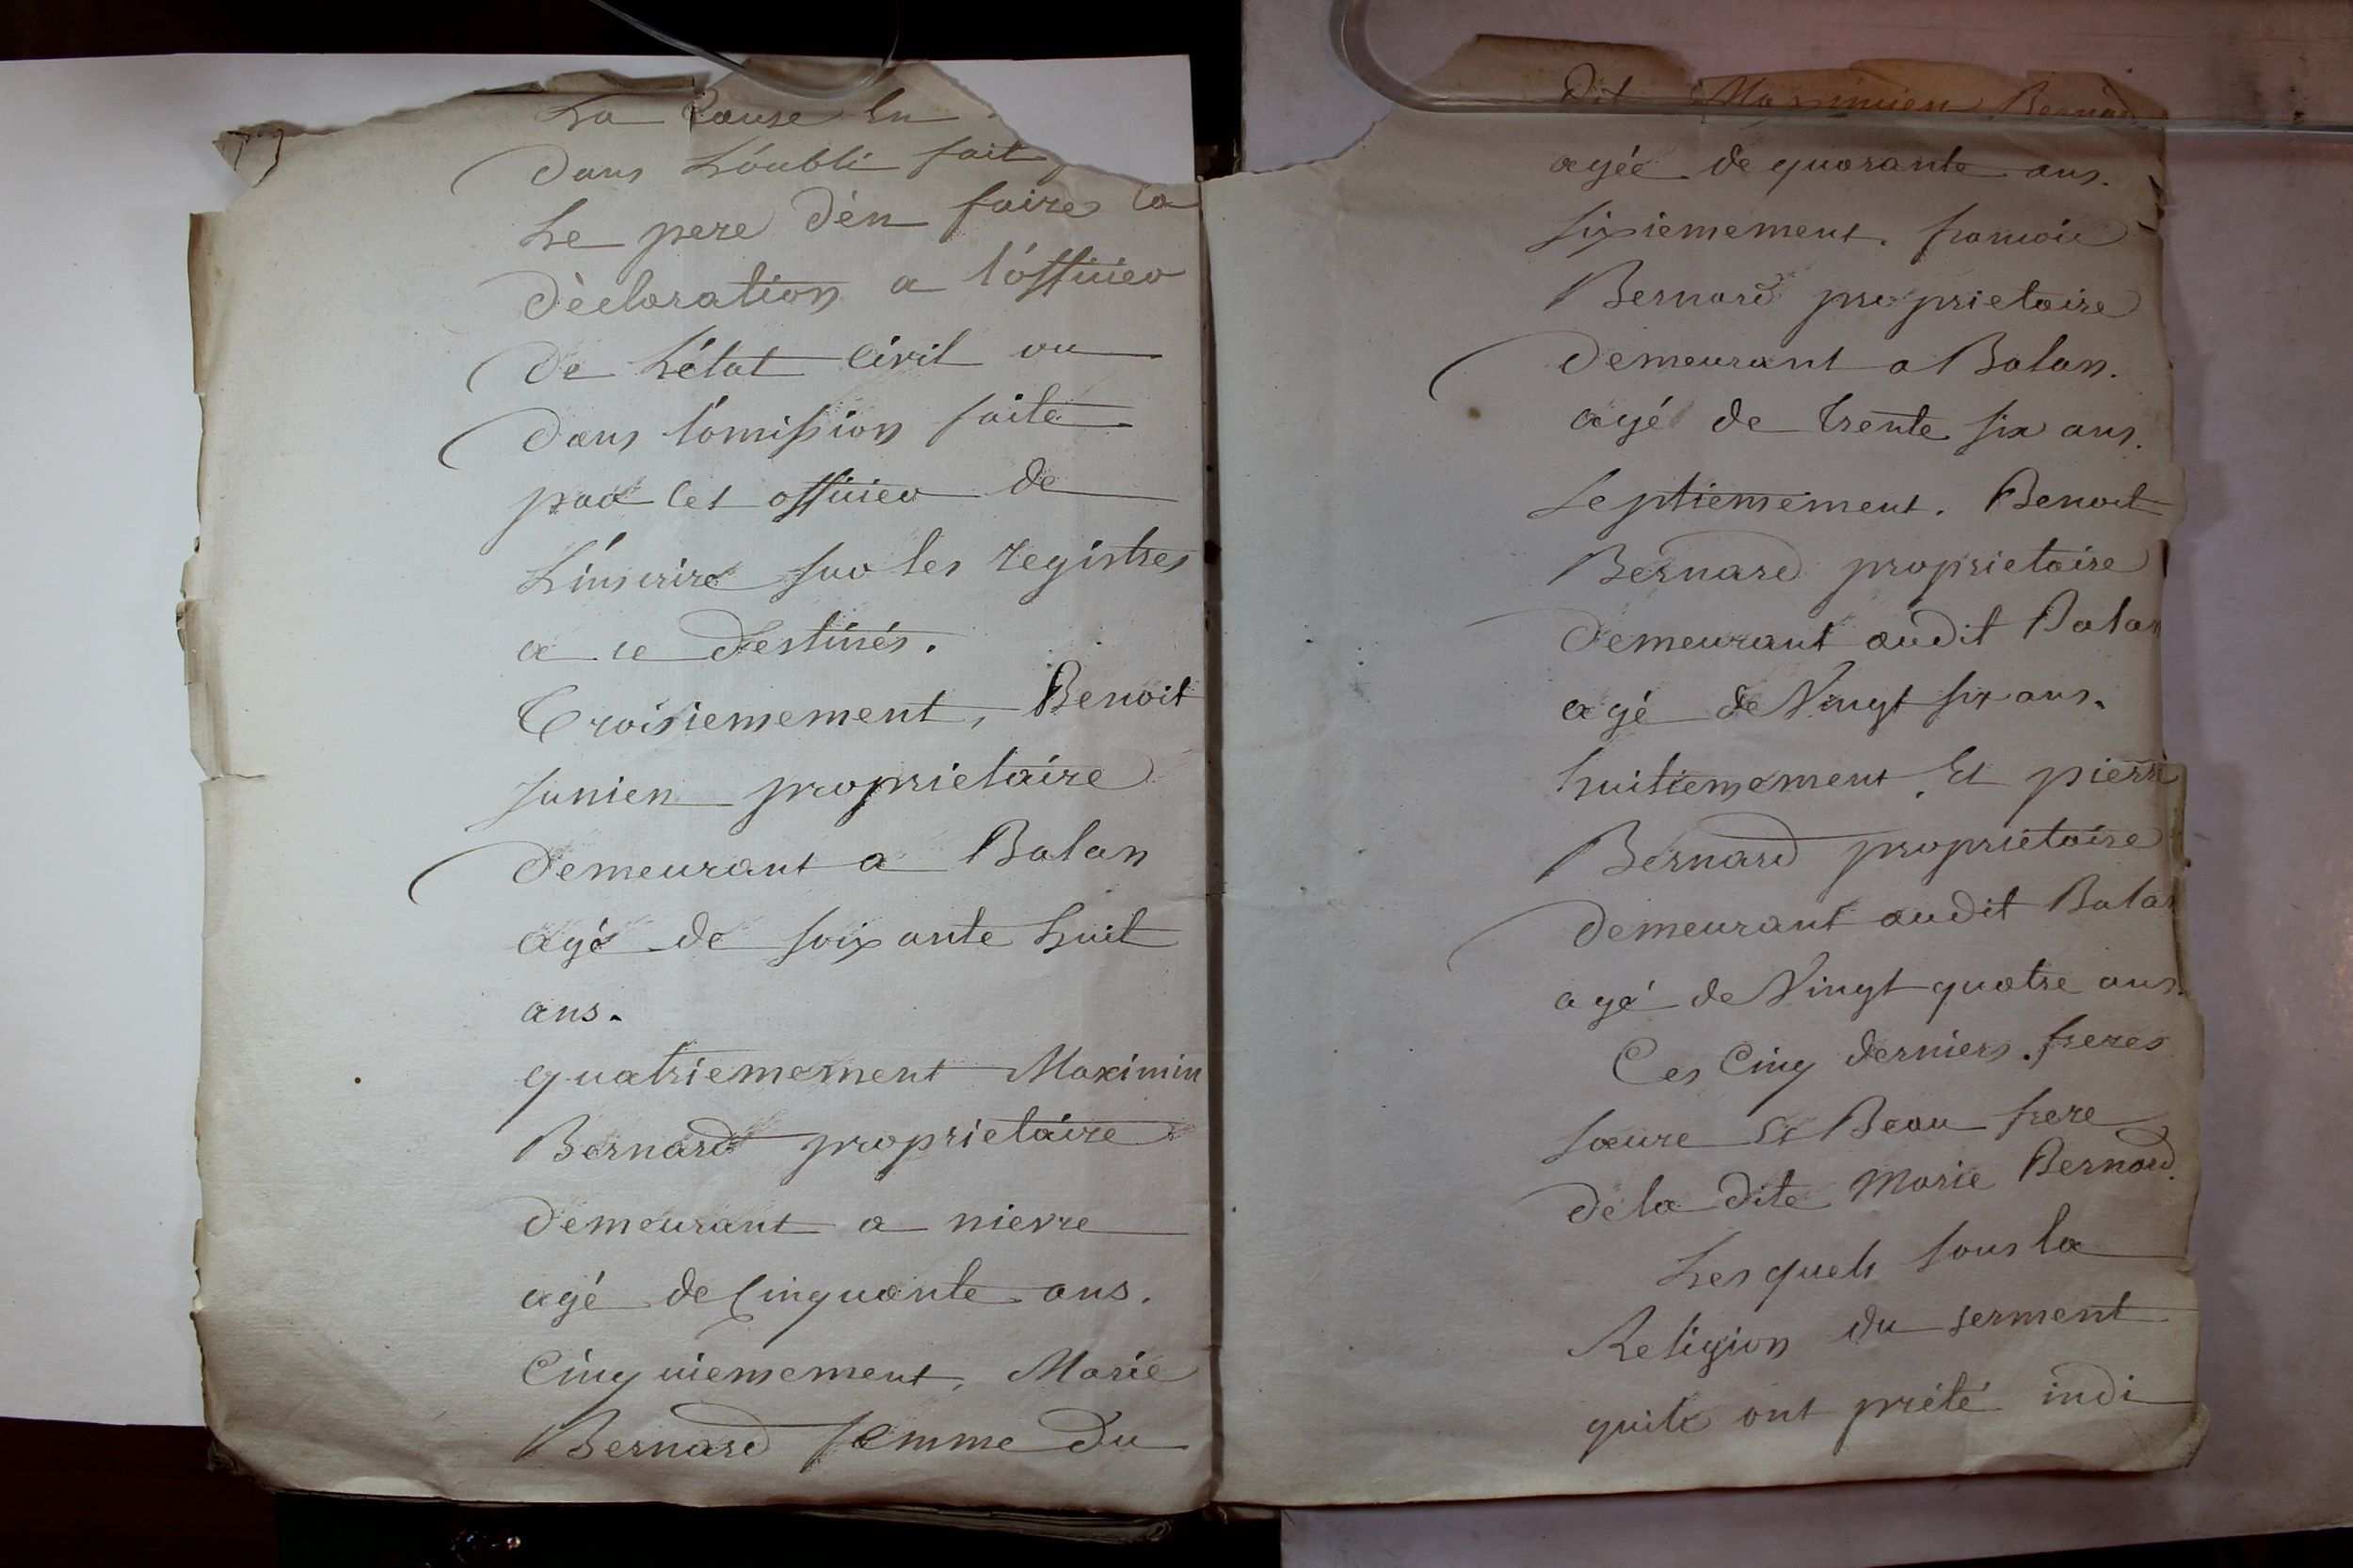 La Cause En
Dans L'oubli fait
Le pere d'en faire la
déclaration a l'officier
De L'état Civil ou
Dans l'omission faite
par cet officier de
L'inscrire sur les registres
a ce Destinés.
Troisiemement, Benoit
Junien proprietaire
Demeurant a Balan
agé de soixante huit
ans.
quatriemement Maximin
Bernard proprietaire
demeurant a nievre
agé de Cinquante ans.
Cinquiemement, Marie
Bernard femme du
Dit Maximien Bernard
agée de quarante ans.
sixiemement. francois
Bernard proprietaire
demeurant a Balan.
agé de trente six ans.
septiemement. Benoit
Bernard proprietaire
demeurant audit Balan
agé de Vingt six ans.
huitiemement. Et pierre
Bernard proprietaire
demeurant audit Balan
agé de Vingt quatre ans.
Ces Cinq derniers. freres
soeure Et Beau frere
de la dite Marie Bernard.
Les quels sous la
Religion du serment
quils ont prété indi